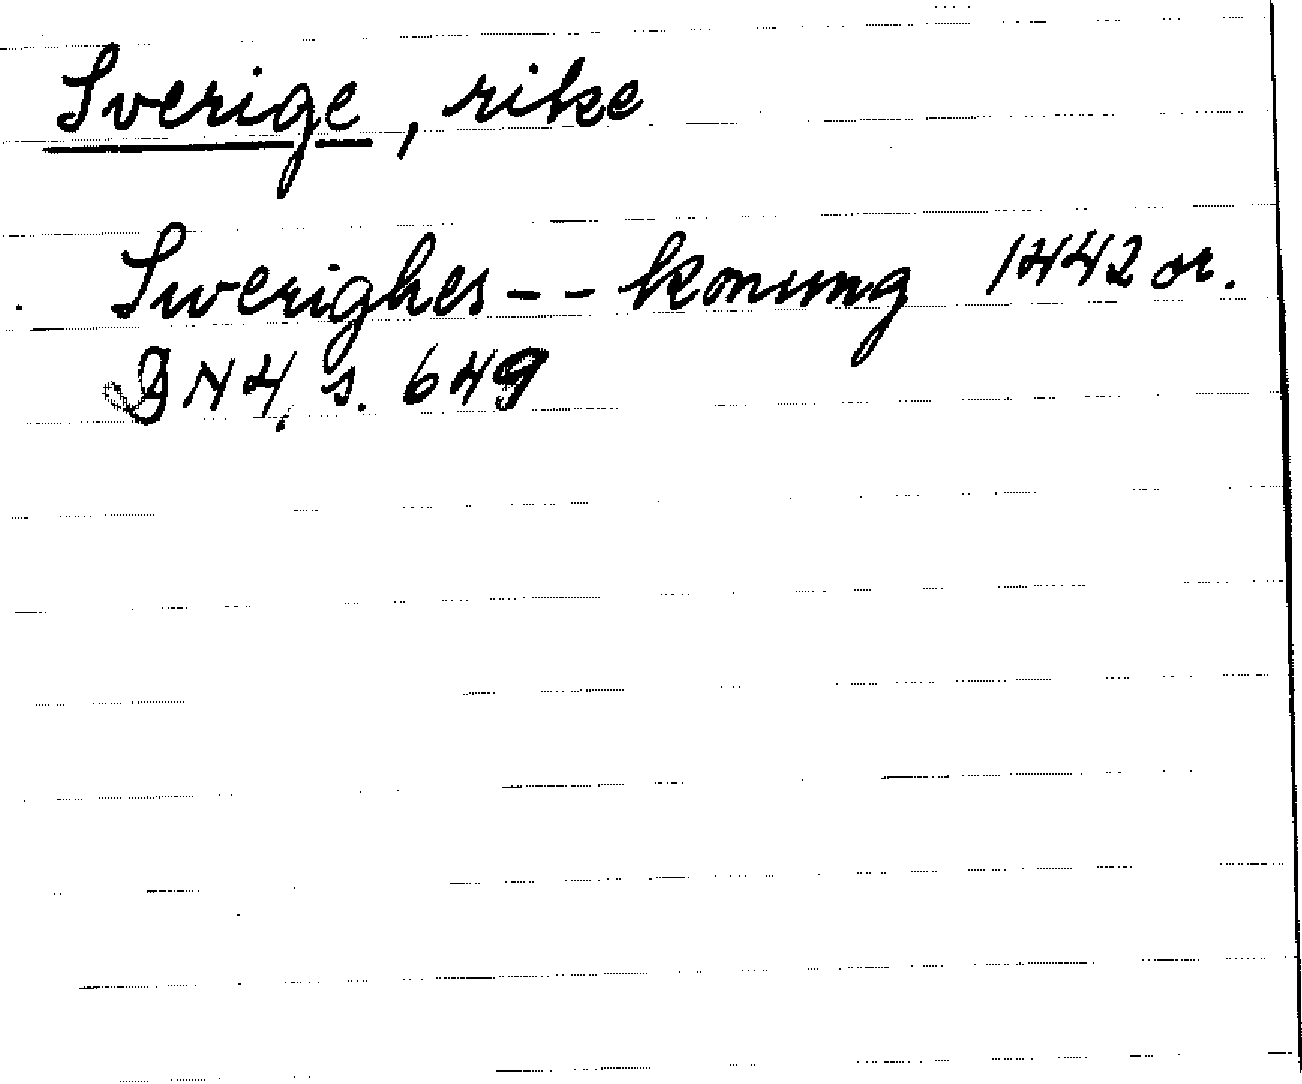 Sverige, rike
Swerighes -- konung 1442 or.
DN 4, s. 649